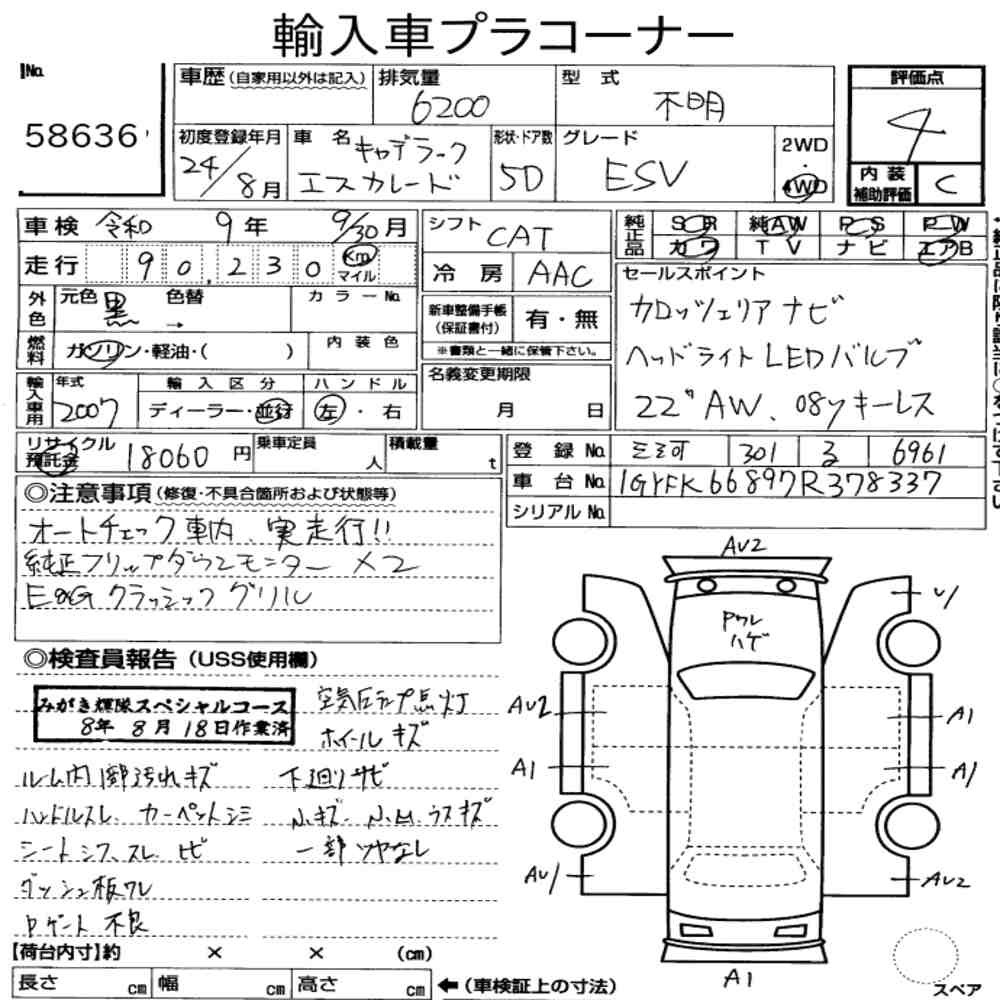 輸入車プラコーナー
No. 58636
車歴(自家用以外は記入) 排気量 6200 型式 不明 評価点 4
初度登録年月 24/8月 車名 キャデラック エスカレード 形状・ドア数 5D グレード ESV 2WD・4WD 内装補助評価 C
車検 令和 9年 9/30月 シフト CAT 純正品 SR 純AW PS PW
走行 90,230 Km マイル 冷房 AAC カワ TV ナビ エアB
外色 元色 黒 色替 → カラーNo.
新車整備手帳(保証書付) 有・無
※書類と一緒に保管下さい。
燃料 ガソリン・軽油・( ) 内装色
セールスポイント
カロッツェリアナビ
ヘッドライトLEDバルブ
22"AW、08yキーレス
輸入車用 年式 2007 輸入区分 ディーラー・並行 ハンドル 左・右
名義変更期限 月 日
リサイクル預託金 18060円 乗車定員 人 積載量 t
登録No. 301 る 6961
車台No. 1GYFK66897R378337
シリアルNo.
◎注意事項(修復・不具合箇所および状態等)
オートチェック車内、実走行!!
純正フリップダウンモニター ×2
E&G クラッシック グリル
◎検査員報告(USS使用欄)
みがき輝隊スペシャルコース
8年 8月 18日作業済
空気圧ランプ点灯
ホイールキズ
ルーム内1部汚れキズ 下廻りサビ
ハンドルスレ、カーペットシミ 小キズ、小凹、ラスキズ
シートシワ、スレ、ヒビ 一部ツヤなし
ダッシュ板ワレ
Pゲート不良
AU2
Pワレ
ハゲ
U1
AU2
A1
A1
A1
AU1
AU2
A1
【荷台内寸】約 × × (cm)
長さ cm 幅 cm 高さ cm ←(車検証上の寸法)
スペア